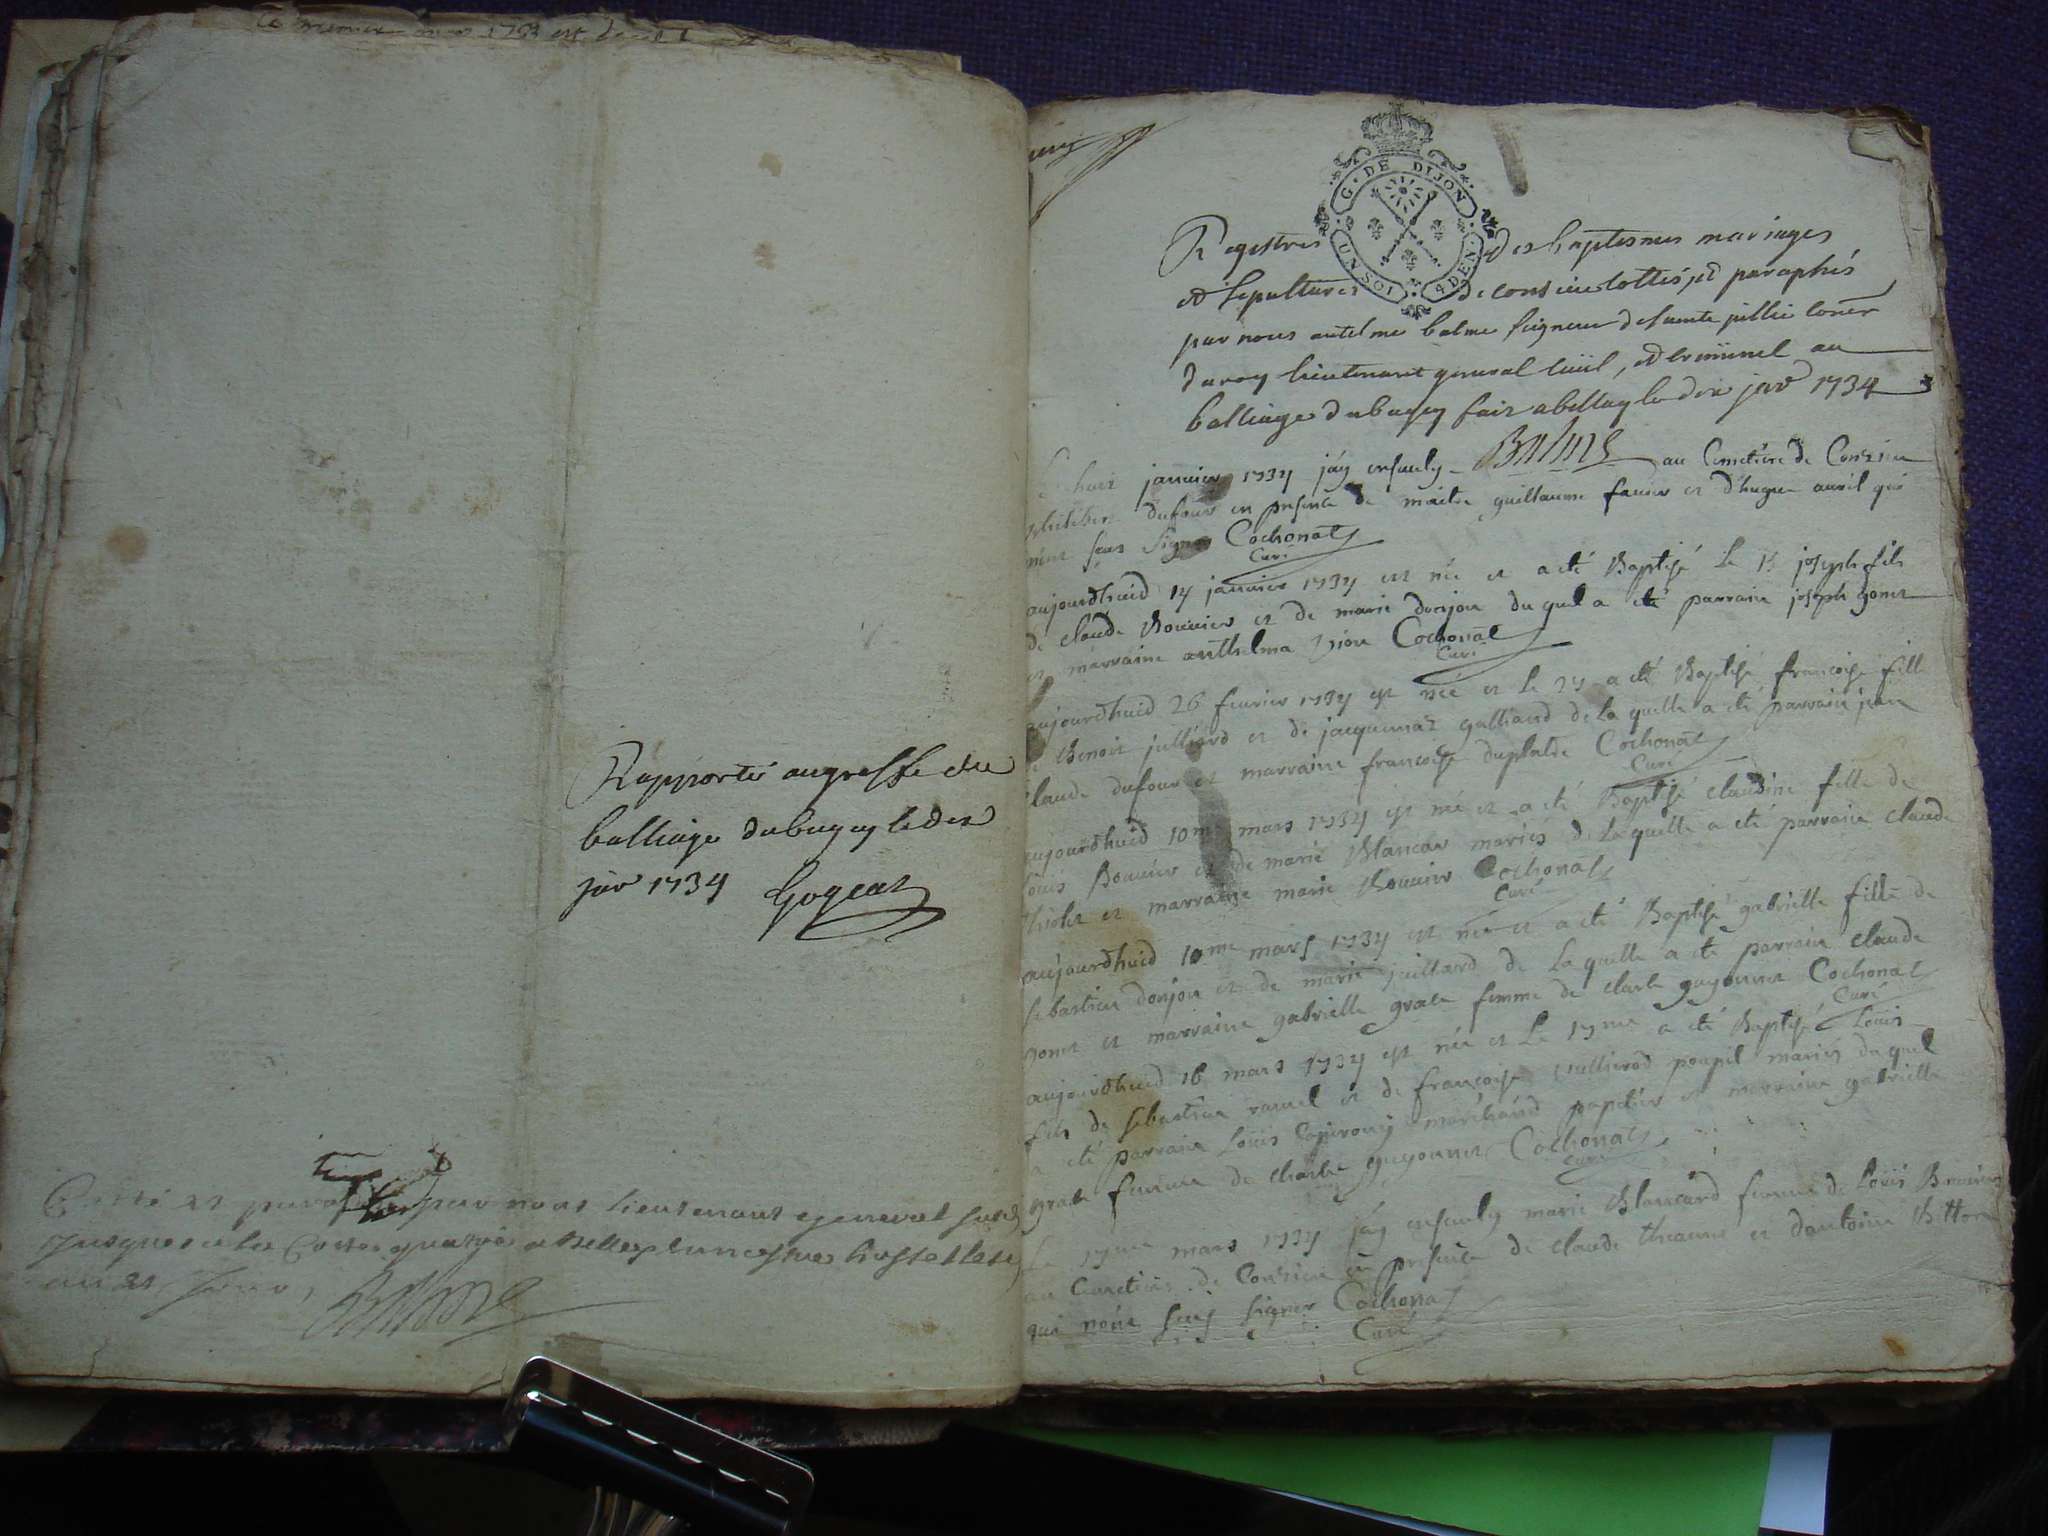 Ce premier 1753 est
Rapporté au greffe du
balliage du bugey le dix
janr 1734 Gogeat
Cotté et paraphé par nous lieutenant general
au 21
Balme
G. DE DIJON
UN SOL 4 DEN.
Registres des baptesmes mariages
et sepultures de consieu cottés, et paraphés
par nous antelme balme seigneur de sainte jullie coner
du roy lieutenant general civil, et criminel au
balliage du bugey fait a bellay le dix janr 1734
Balme
huit janvier 1734 j'ay enseuely au Cimetiere de Conzieu
dufour en presence de maitre guillaume favier et d'hugue avril qui
n'ont sceu signer Cochonat
Curé
aujourdhuid 14 janvier 1734 est née et a eté Baptisé le 15 joseph fils
de claude Bouvier et de marie donjon du quel a eté parrain joseph gonet
et marraine anthelma Cochonat
Curé
aujourdhuid 26 fevrier 1734 est née et le 27 a eté Baptisé françoise fille
de Benoit julliard et de jacquemaz galliand de la quelle a eté parrain jean
claude dufour et marraine françoise duplatre Cochonat
Curé
aujourdhuid 10me mars 1734 est née et a eté Baptisé claudine fille de
Louis Bouvier et de marie Blancar mariés de la quelle a eté parrain claude
et marraine marie Bouvier Cochonat
Curé
aujourdhuid 10me mars 1734 est née et a eté Baptisé gabrielle fille de
sebastien donjon et de marie juillard de la quelle a eté parrain claude
gonet et marraine gabrielle grate femme de charle guyonnet Cochonat
Curé
aujourdhuid 16 mars 1734 est née et le 17me a eté Baptisé Louis
fils de sebastien ramel et de françoise jullierod poupil mariés du quel
a eté parrain Louis marchand papetier et marraine gabrielle
grate femme de charle guyonnet Cochonat
Curé
Le 17me mars 1734 j'ay enseuely marie Blancard femme de Louis Bouvier
au Cimetiere de Conzieu en presence de claude et d'antoine
qui n'ont sceu signer Cochonat
Curé